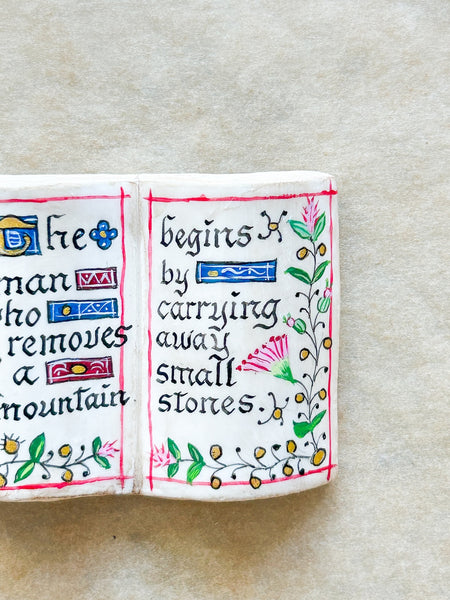 The
man
who
removes
a
mountain
begins
by
carrying
away
small
stones.